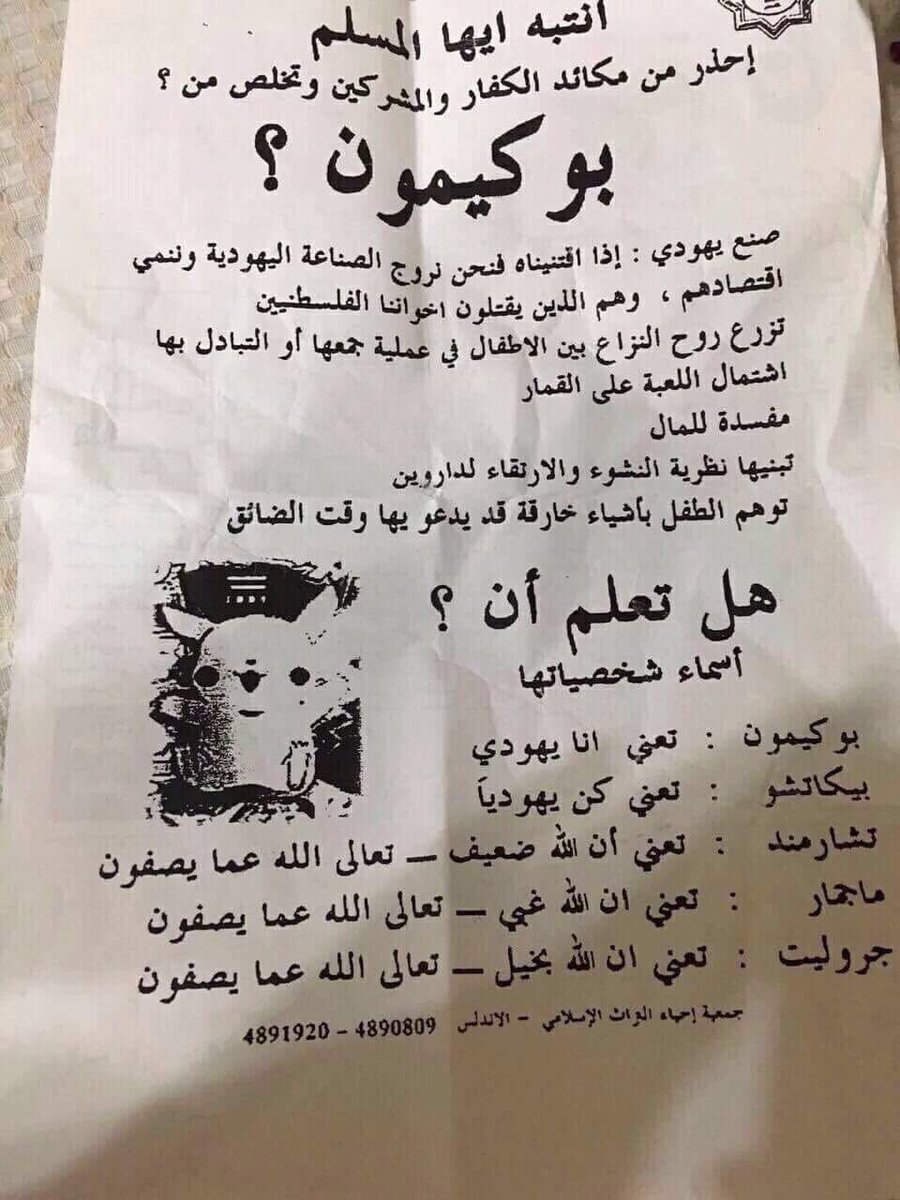 انتبه ايها المسلم
إحذر من مكائد الكفار والمشركين وتخلص من ؟
بوكيمون ؟
صنع يهودي : إذا اقتنيناه فنحن نروج الصناعة اليهودية وننمي
اقتصادهم ، وهم الذين يقتلون اخواننا الفلسطنيين
تزرع روح النزاع بين الاطفال في عملية جمعها أو التبادل بها
اشتمال اللعبة على القمار
مفسدة للمال
تبنيها نظرية النشوء والارتقاء لداروين
توهم الطفل بأشياء خارقة قد يدعو يها وقت الضائق
هل تعلم أن ؟
أسماء شخصياتها
بوكيمون : تعني انا يهودي
بيكاتشو : تعني كن يهودياَ
تشارمند : تعني أن الله ضعيف ــ تعالى الله عما يصفون
ماجمار : تعني ان الله غبي ــ تعالى الله عما يصفون
جروليت : تعني ان الله بخيل ــ تعالى الله عما يصفون
جمعية إحياء التراث الإسلامي - الاندلس 4890809 - 4891920